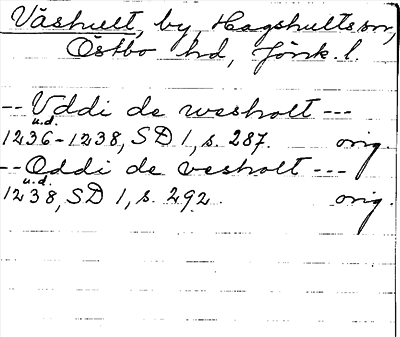 Våshult, by, Hagshults sn,
Östbo hd, Jönk. l.
-- Vddi de wesholt ---
u.d.
1236-1238, SD 1, s. 287. orig.
-- Oddi de vesholt ---
u.d.
1238, SD 1, s. 292. orig.